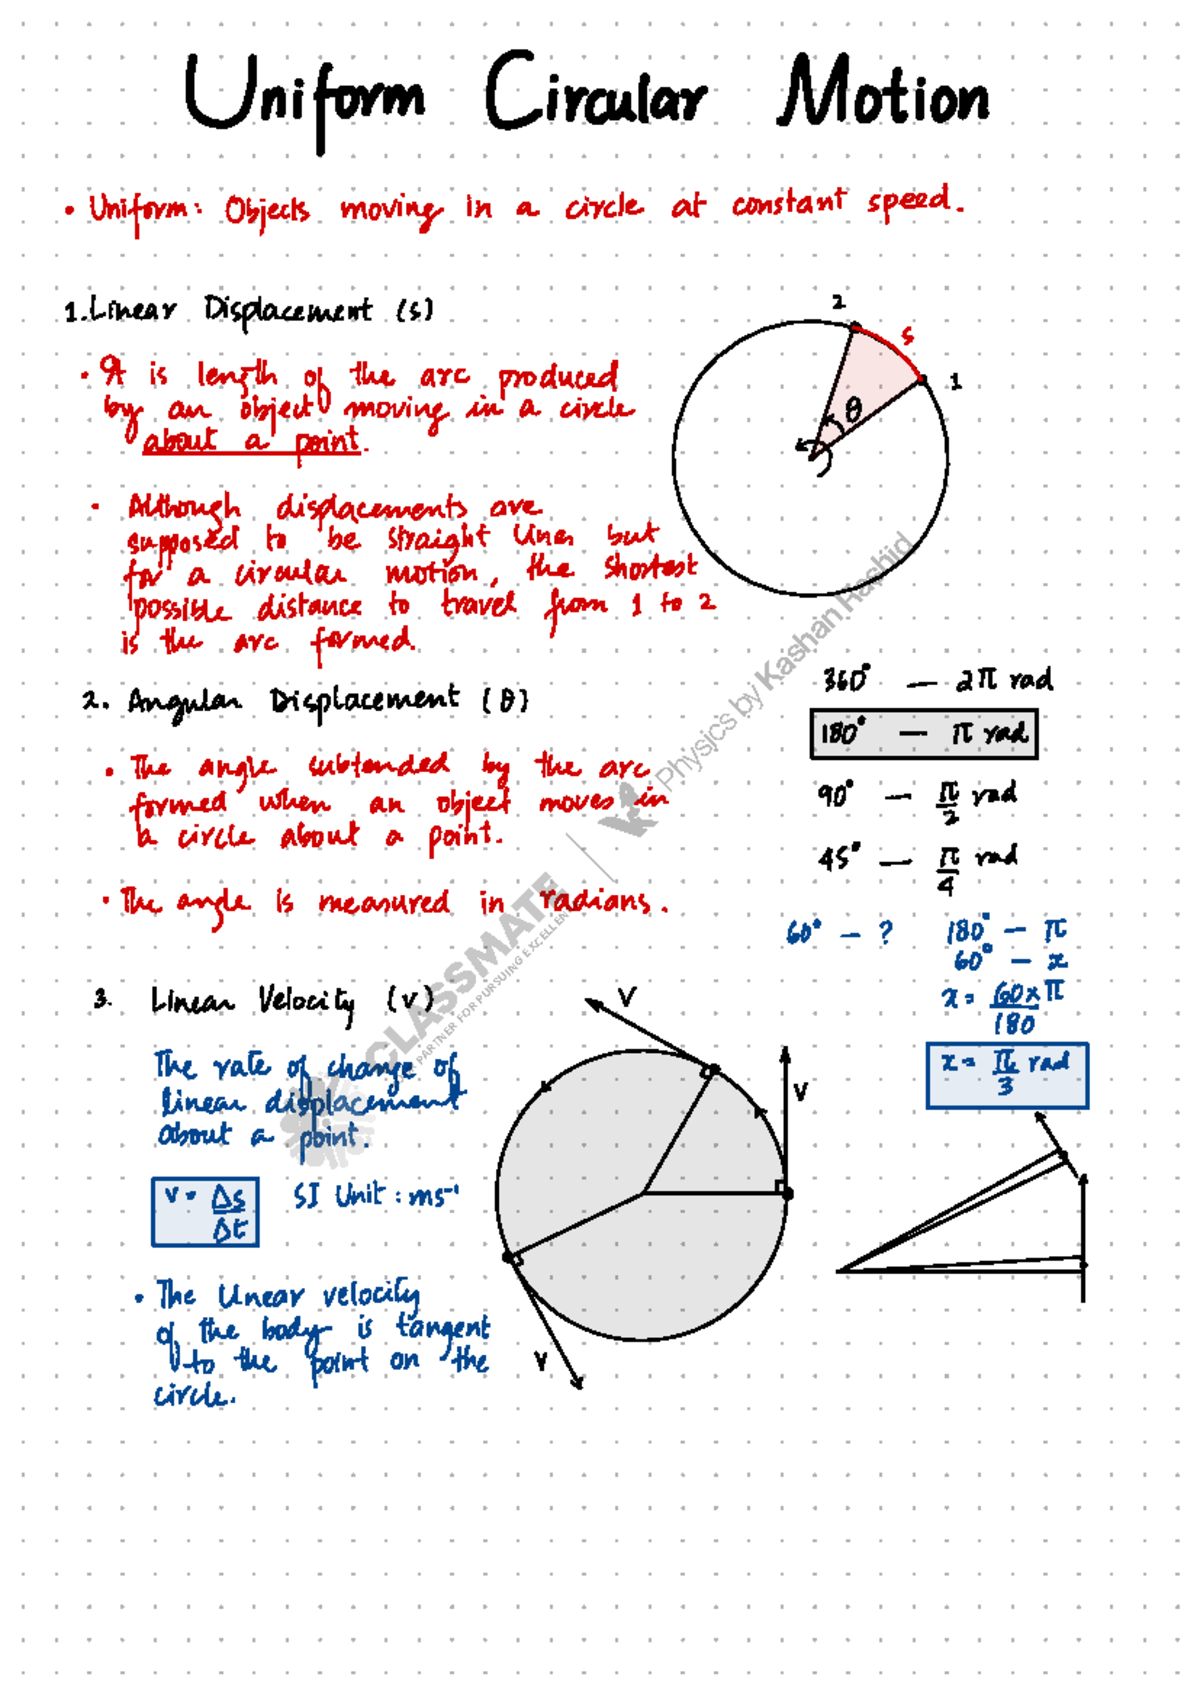 Uniform Circular Motion
• Uniform: Objects moving in a circle at constant speed.
1. Linear Displacement (s)
• It is length of the arc produced
by an object moving in a circle
about a point.
• Although displacements are
supposed to be straight lines but
for a circular motion, the shortest
possible distance to travel from 1 to 2
is the arc formed.
2
s
1
θ
2. Angular Displacement (θ)
• The angle subtended by the arc
formed when an object moves in
a circle about a point.
• The angle is measured in radians.
360° — 2π rad
180° — π rad
90° — π/2 rad
45° — π/4 rad
60° — ?
180° — π
60° — x
x = 60 × π / 180
x = π/3 rad
3. Linear Velocity (v)
The rate of change of
linear displacement
about a point.
v = Δs/Δt
SI Unit : ms⁻¹
• The linear velocity
of the body is tangent
to the point on the
circle.
v
v
v
CLASSMATE
PARTNER FOR PURSUING EXCELLEN
Physics by Kashan Rashid